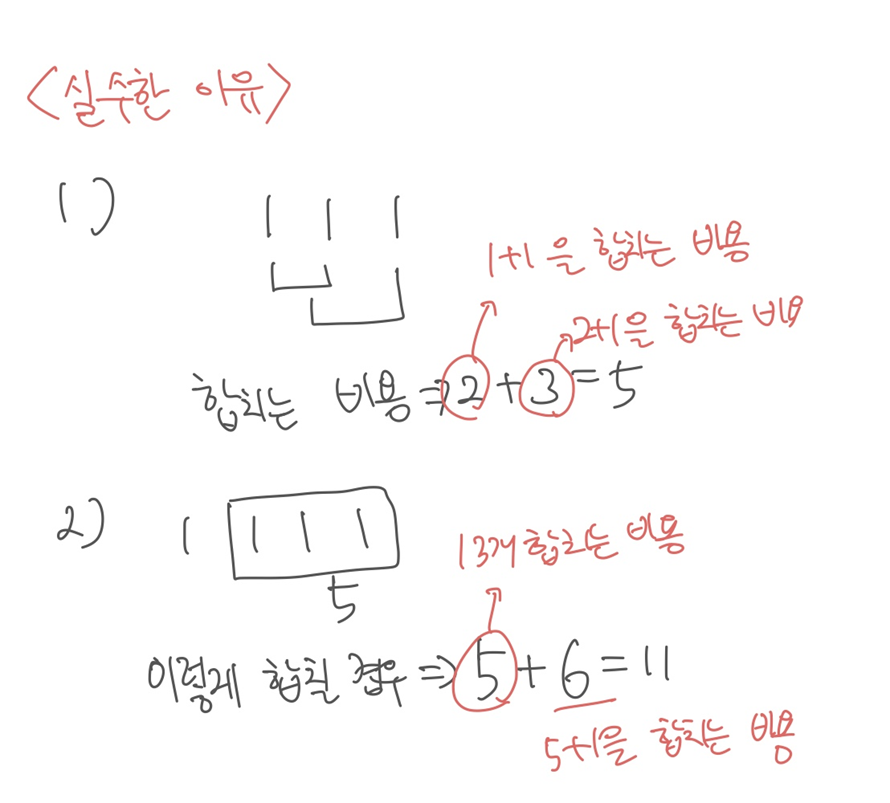 <실수한 이유>
1)
1 1 1
1+1을 합치는 비용
2+1을 합치는 비용
합치는 비용 ⇒ 2 + 3 = 5
2)
1 1 1 1
5
1 3개 합치는 비용
이렇게 합칠 경우 ⇒ 5 + 6 = 11
5+1을 합치는 비용